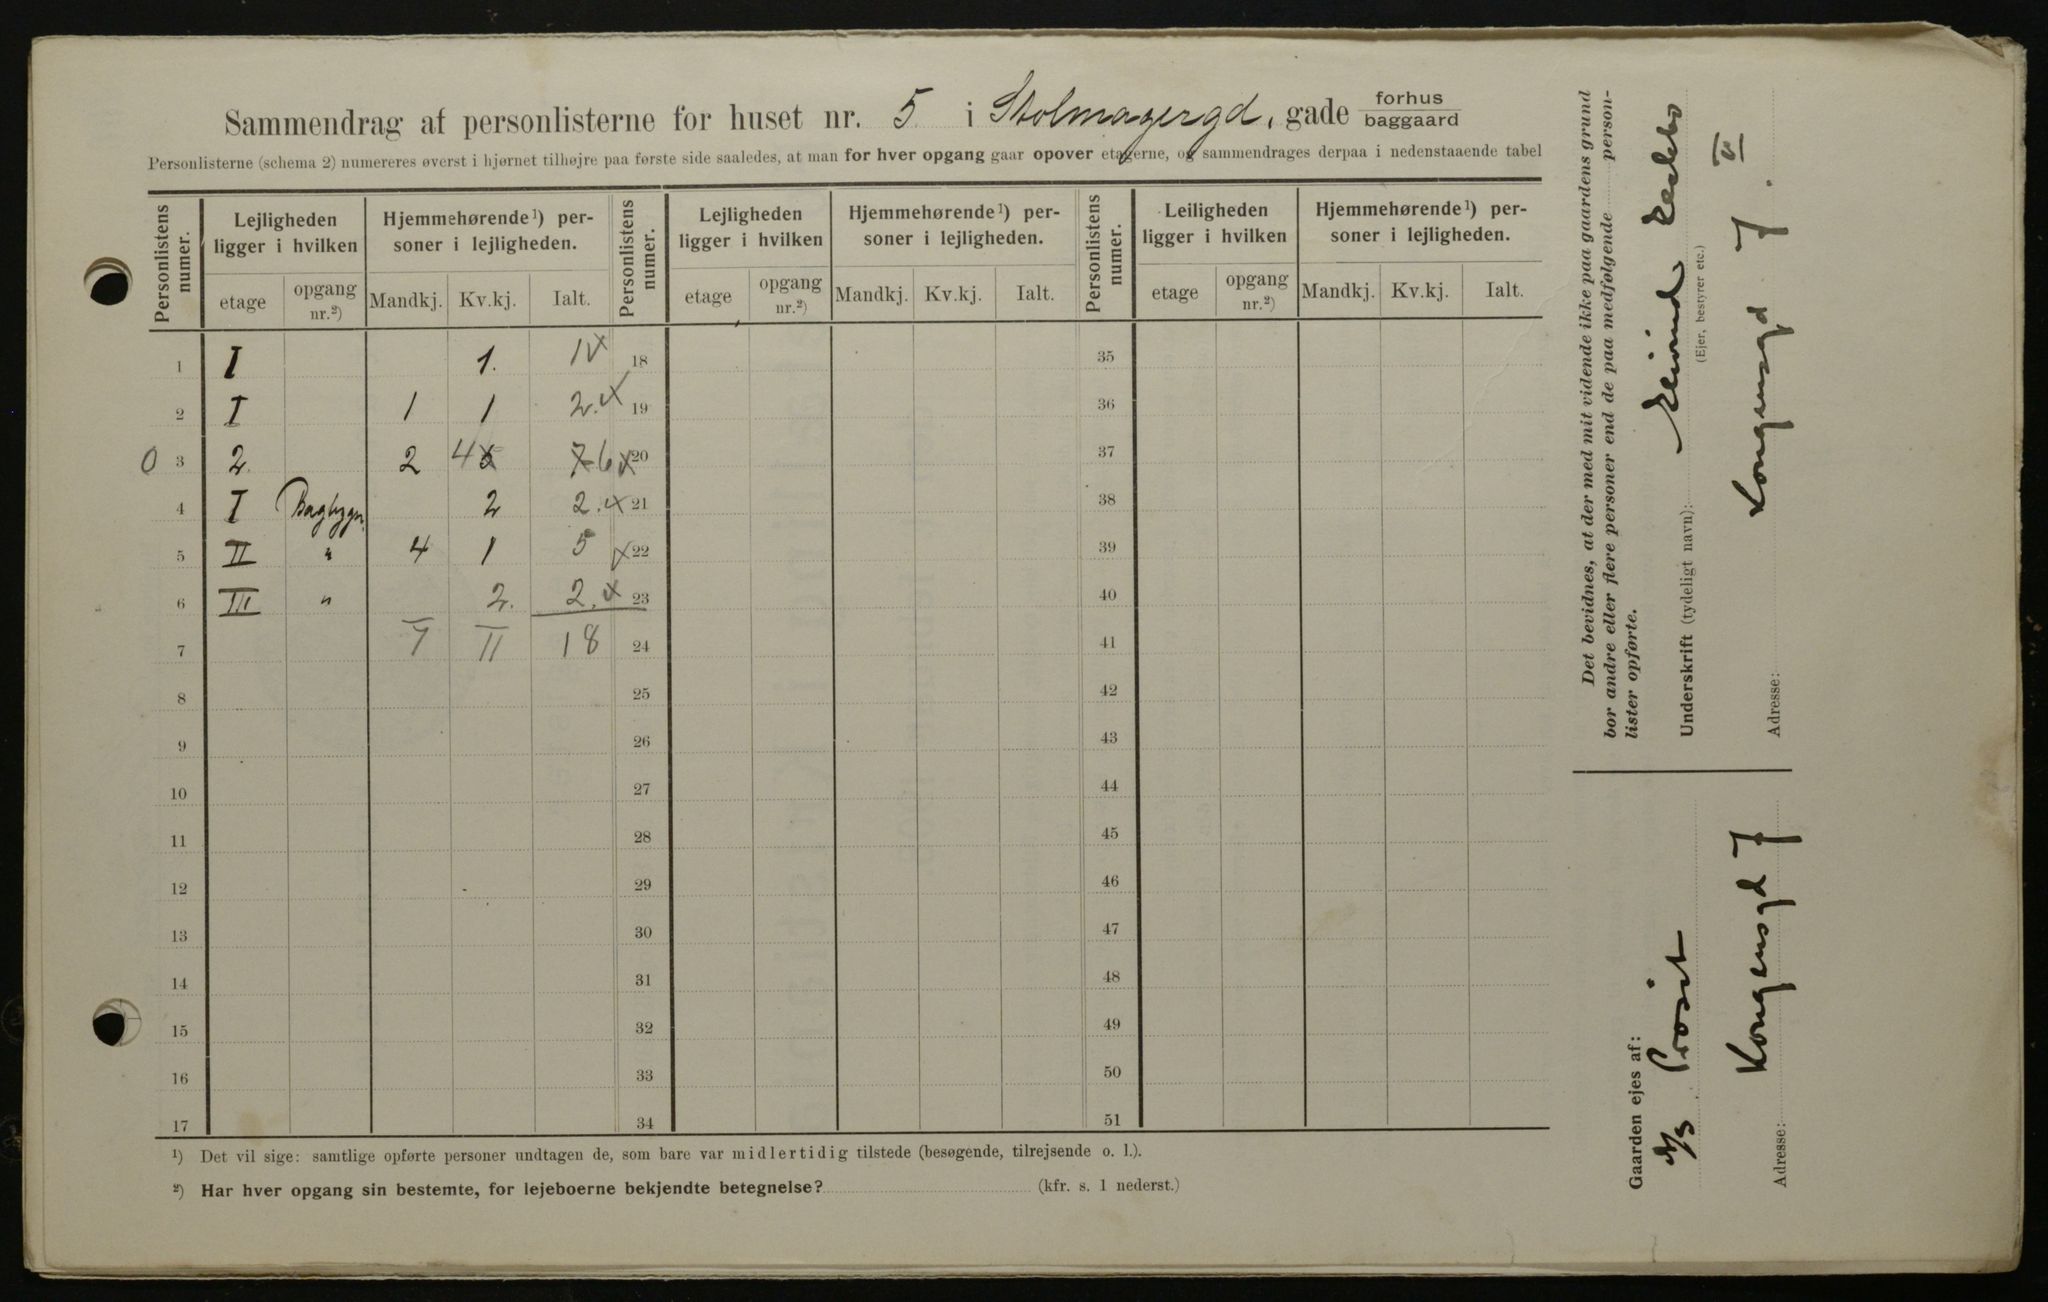 Sammendrag af personlisterne for huset nr. 5 i Stolmagergd, gade forhus baggaard
Personlisterne (schema 2) numereres øverst i hjørnet tilhøjre paa første side saaledes, at man for hver opgang gaar opover etagerne, og sammendrages derpaa i nedenstaaende tabel
Personlistens numer. Lejligheden ligger i hvilken Hjemmehørende¹) personer i lejligheden. Personlistens numer. Lejligheden ligger i hvilken Hjemmehørende¹) personer i lejligheden. Personlistens numer. Leiligheden ligger i hvilken Hjemmehørende¹) personer i lejligheden.
etage opgang nr.²) Mandkj. Kv.kj. Ialt. etage opgang nr.²) Mandkj. Kv.kj. Ialt. etage opgang nr.²) Mandkj. Kv.kj. Ialt.
1 I 1. 1 18 35
2 I 1 1 2. 19 36
0 3 2. 2 4 5 7 6 20 37
4 I Bagbygn. 2 2. 21 38
5 II " 4 1 5 22 39
6 III " 2. 2. 23 40
7 7 11 18 24 41
8 25 42
9 26 43
10 27 44
11 28 45
12 29 46
13 30 47
14 31 48
15 32 49
16 33 50
17 34 51
¹) Det vil sige: samtlige opførte personer undtagen de, som bare var midlertidig tilstede (besøgende, tilrejsende o. l.).
²) Har hver opgang sin bestemte, for lejeboerne bekjendte betegnelse? (kfr. s. 1 nederst.)
Det bevidnes, at der med mit vidende ikke paa gaardens grund
bor andre eller flere personer end de paa medfølgende person-
lister opførte.
Underskrift (tydeligt navn): Eivind
(Ejer, bestyrer etc.)
Adresse: Kongensgd 7. II
Gaarden ejes af:
A/S Prosit
Adresse: Kongensgd 7